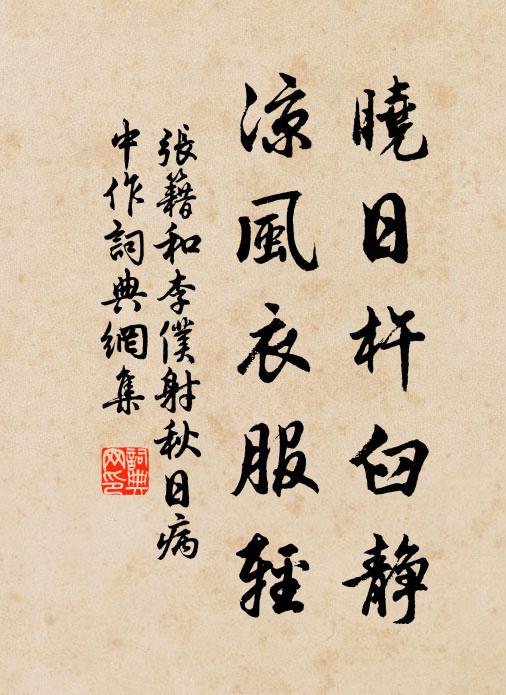 曉日杵臼静
涼風衣服輕
張籍和李僕射秋日病
中作詞典網集
詞典
网印